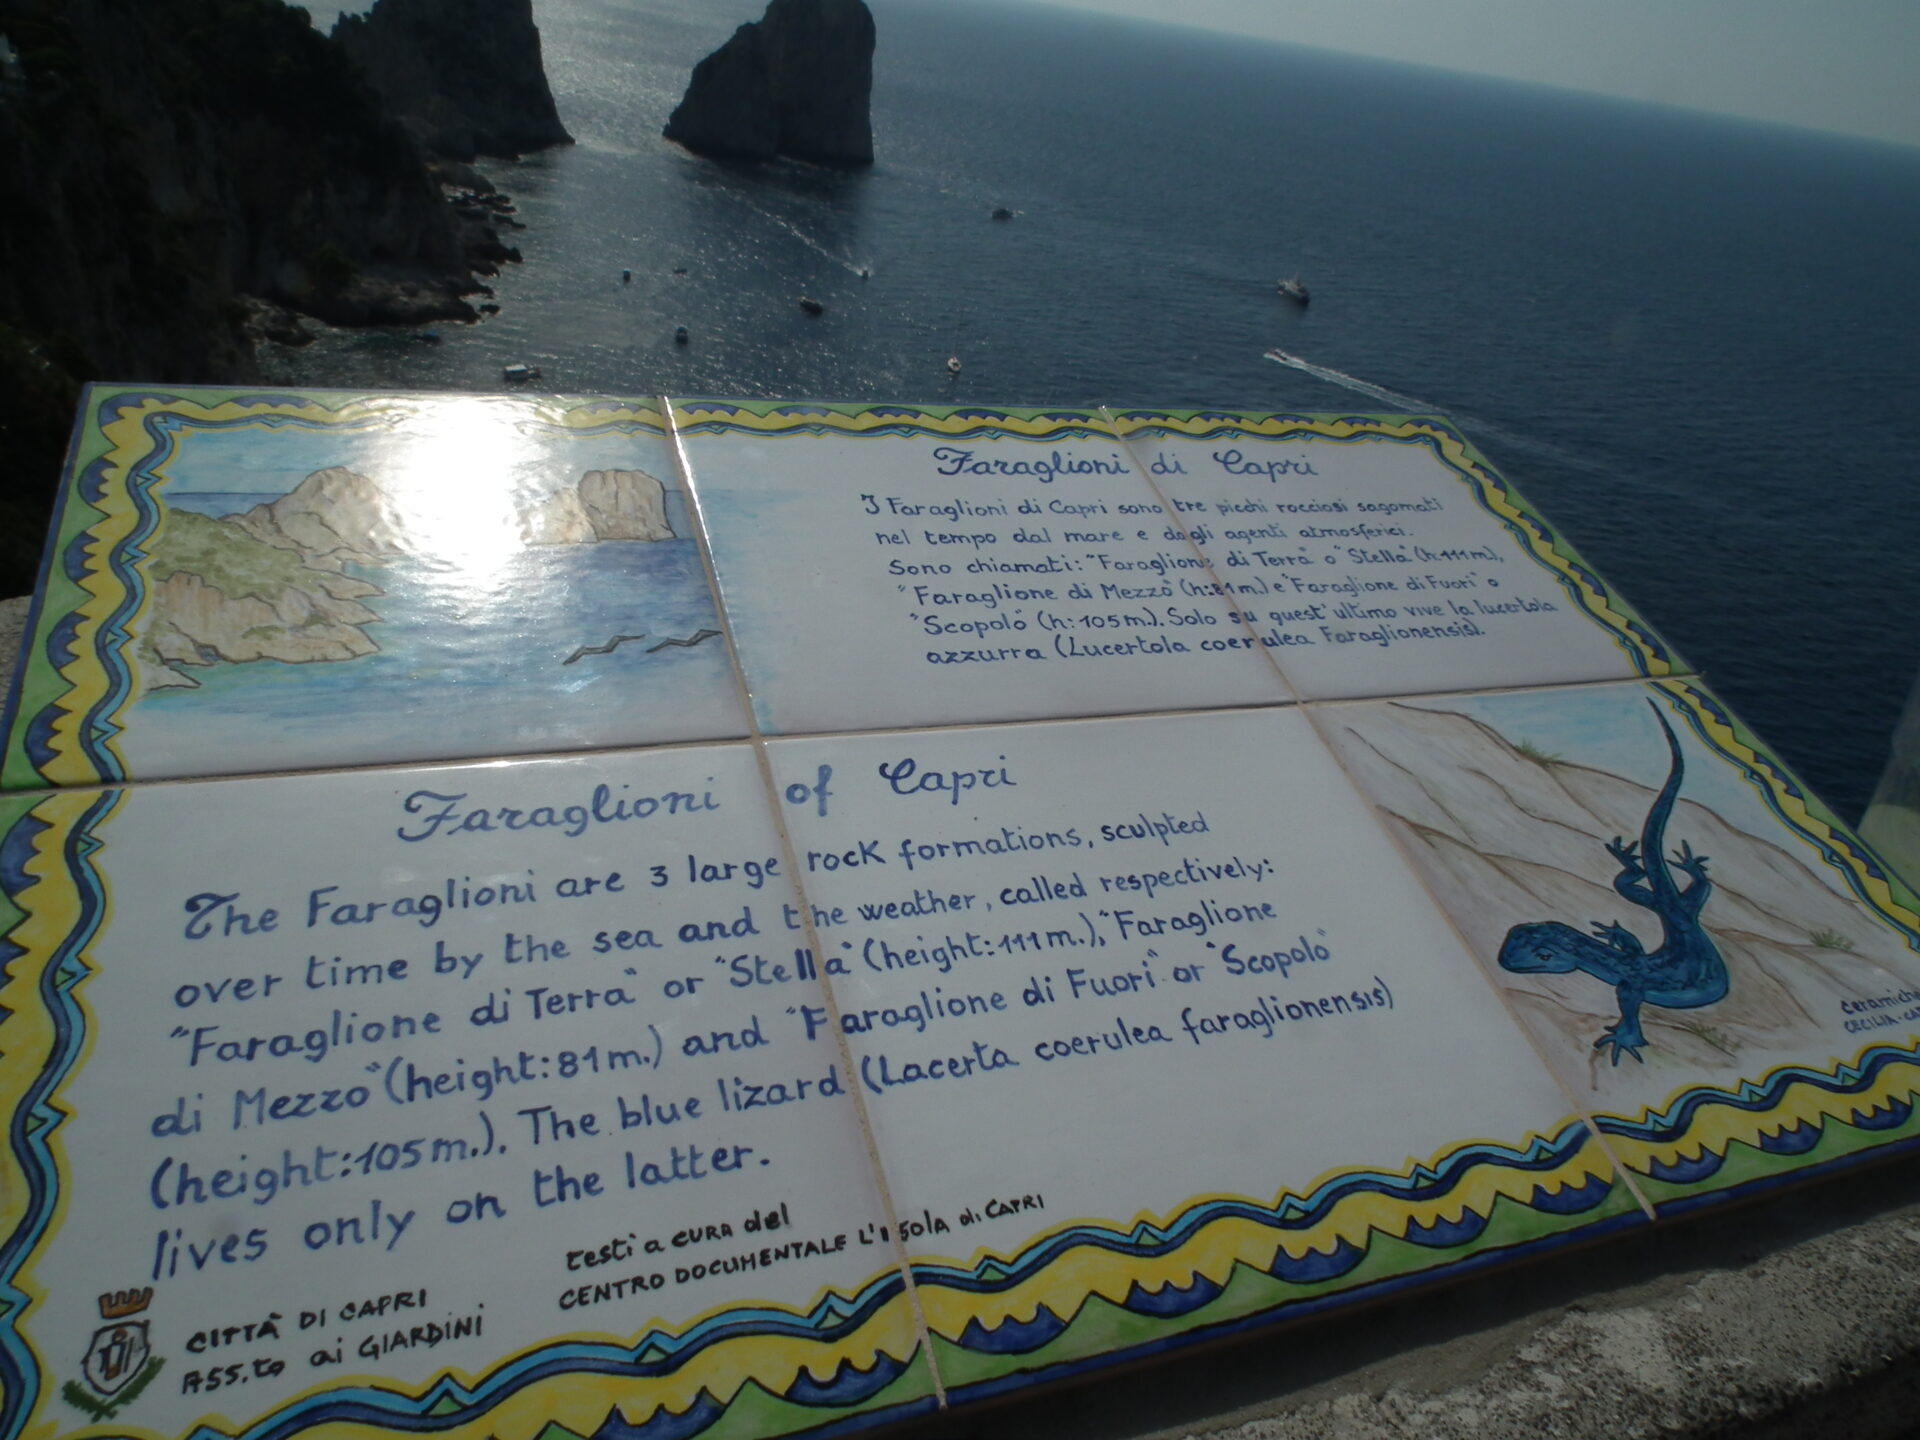 Faraglioni di Capri
I Faraglioni di Capri sono tre picchi rocciosi sagomati
nel tempo dal mare e dagli agenti atmosferici.
Sono chiamati: "Faraglione di Terra" o "Stella" (h:111m.),
"Faraglione di Mezzo" (h:81m.) e "Faraglione di Fuori" o
"Scopolo" (h:105m.). Solo su quest'ultimo vive la lucertola
azzurra (Lucertola coerulea Faraglionensis).
Faraglioni of Capri
The Faraglioni are 3 large rock formations, sculpted
over time by the sea and the weather, called respectively:
"Faraglione di Terra" or "Stella" (height:111m.), "Faraglione
di Mezzo" (height:81m.) and "Faraglione di Fuori" or "Scopolo"
(height:105m.). The blue lizard (Lacerta coerulea faraglionensis)
lives only on the latter.
CITTÀ DI CAPRI
ASS.to ai GIARDINI
testi a cura del
CENTRO DOCUMENTALE L'ISOLA di CAPRI
CECILIA